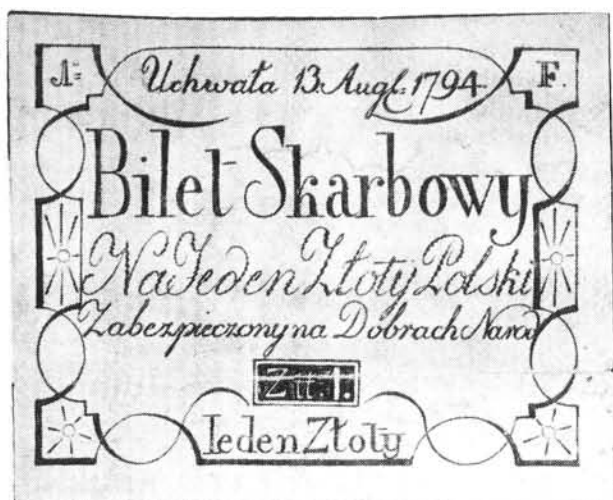 A= Uchwała 13. Augt: 1794. F.
Bilet Skarbowy
Na Jeden Złoty Polski
Zabezpieczony na Dobrach Narod
Zł: 1.
Ieden Złoty